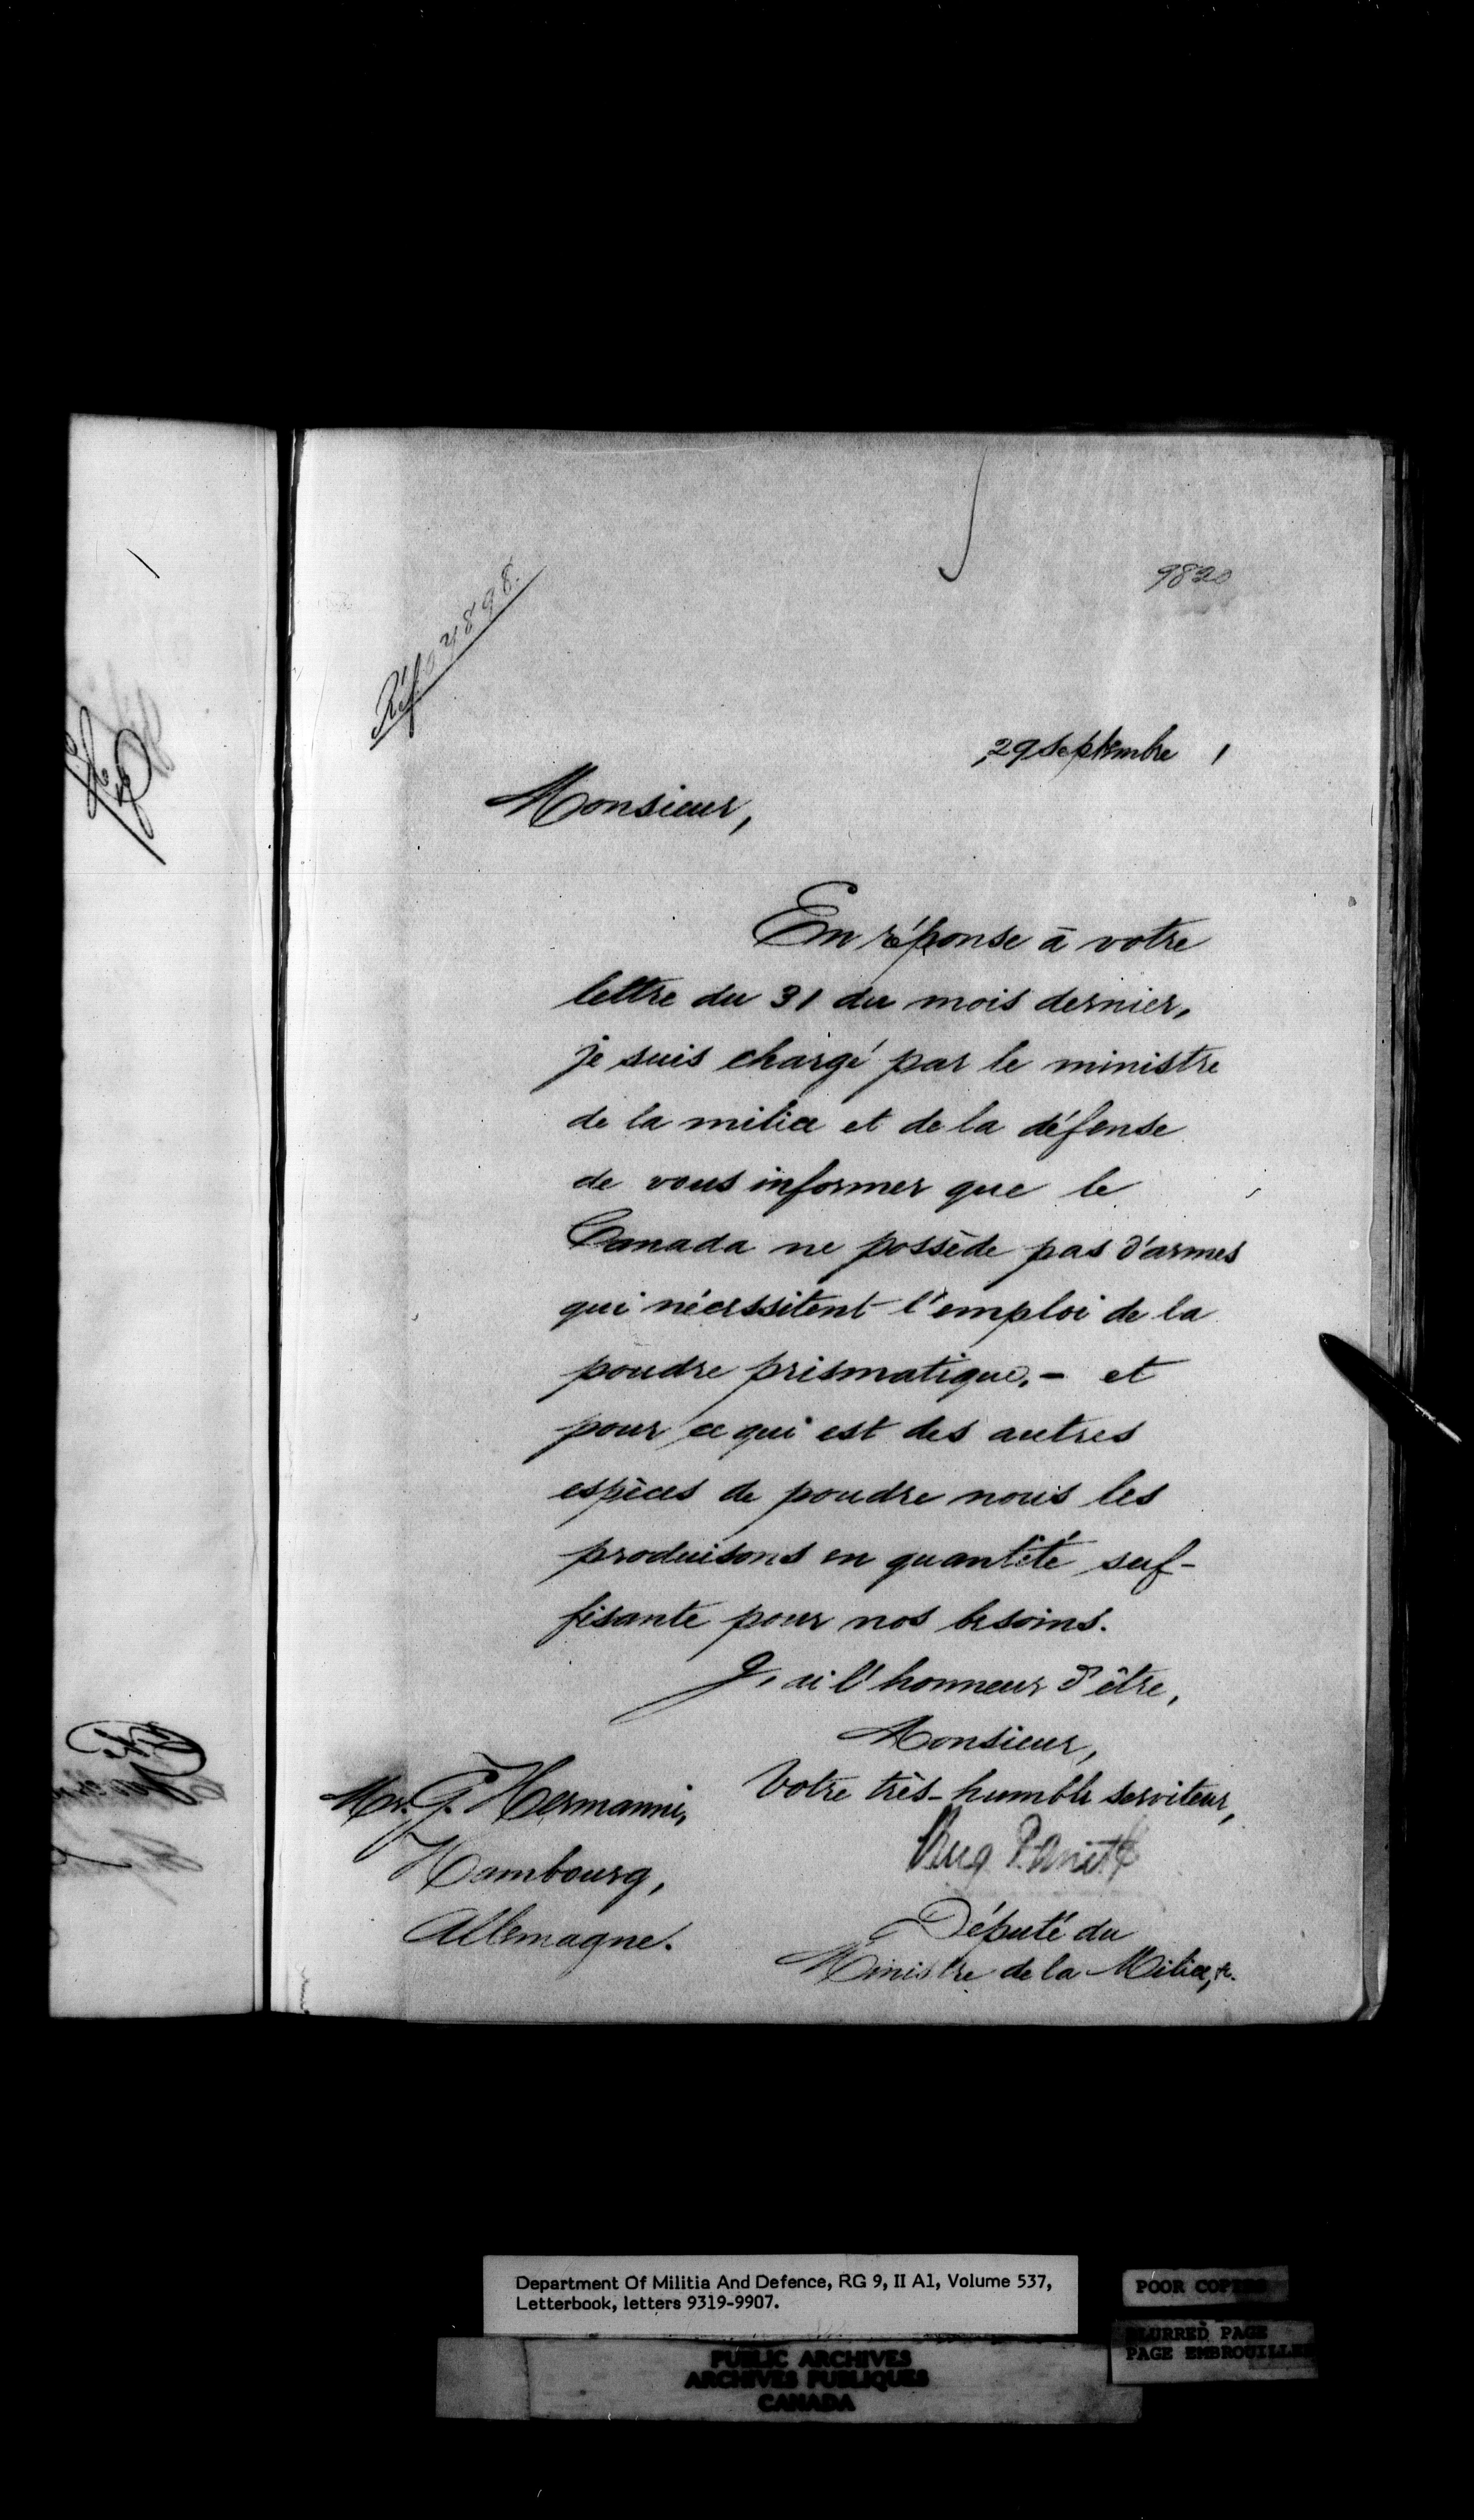 9820
Réf. 04898.
29 septembre 1
Monsieur,
En réponse à votre
lettre du 31 du mois dernier,
je suis chargé par le ministre
de la milice et de la défense
de vous informer que le
Canada ne possède pas d'armes
qui nécessitent l'emploi de la
poudre prismatique, - et
pour ce qui est des autres
espèces de poudre nous les
produisons en quantité suf-
fisante pour nos besoins.
J'ai l'honneur d'être,
Monsieur,
Votre très-humble serviteur,
Eug Panet
Député du
Ministre de la Milice, &c.
Mr. G. Hermanni,
Hambourg,
Allemagne.
Department Of Militia And Defence, RG 9, II A1, Volume 537,
Letterbook, letters 9319-9907.
POOR COPIES
BLURRED PAGE
PAGE EMBROUILLEE
PUBLIC ARCHIVES
ARCHIVES PUBLIQUES
CANADA